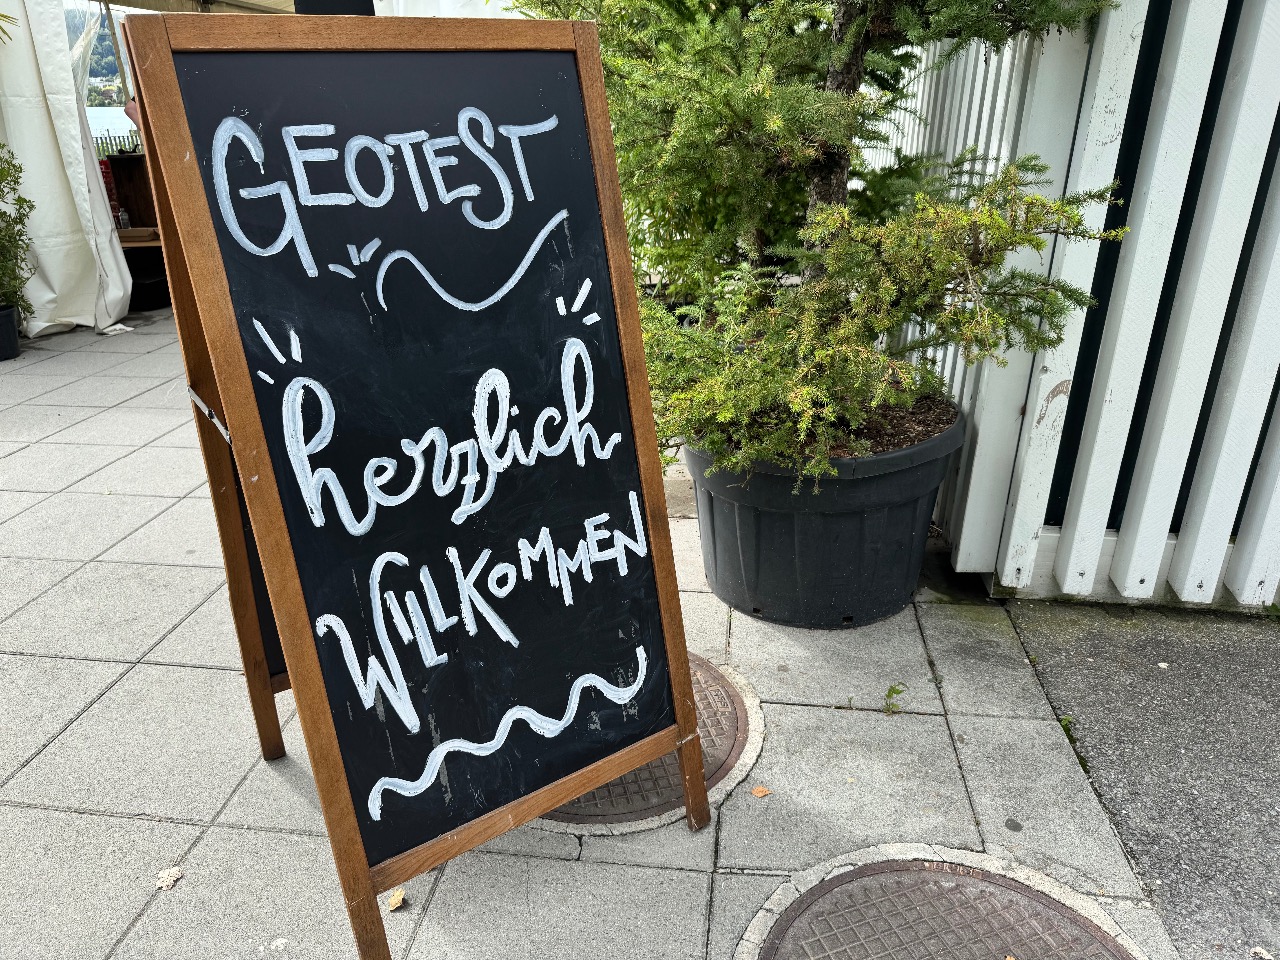 GEOTEST
herzlich
WILLKOMMEN